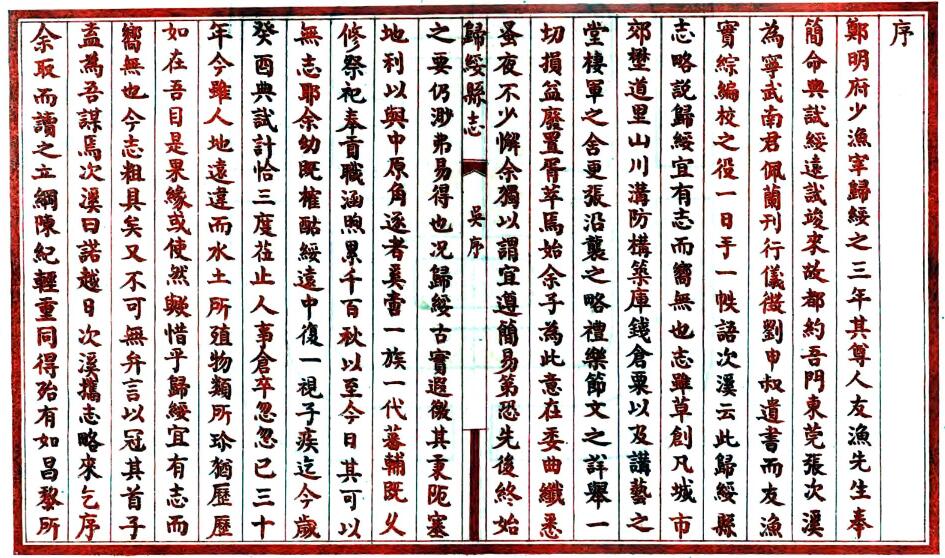 序
鄭明府少漁宰歸綏之三年其尊人友漁先生奉
簡命典試綏遠試竣來故都約吾門東莞張次溪
為寧武南君佩蘭刊行儀徵劉申叔遺書而友漁
實綜編校之役一日手一帙語次溪云此歸綏縣
志略説歸綏宜有志而嚮無也志雖草創凡城市
郊壄道里山川溝防構築庫錢倉粟以及講藝之
堂棲軍之舍更張沿襲之略禮樂節文之詳舉一
切損益廢置胥萃焉始余子為此意在委曲纖悉
蚤夜不少懈余獨以謂宜遵簡易第恐先後終始
歸綏縣志
吳序
之要仍渺弗易得也况歸綏古實遐徼其秉阨塞
地利以與中原角逐者奚啻一族一代蕃輔既乆
修祭祀奉貢職涵煦累千百秋以至今日其可以
無志耶余幼既榷酤綏遠中復一視子疾迄今歲
癸酉典試計恰三度莅止人事倉卒忽忽已三十
年今雖人地遠違而水土所殖物類所珍猶歷歷
如在吾目是果緣或使然歟惜乎歸綏宜有志而
嚮無也今志粗具矣又不可無弁言以冠其首子
盍為吾謀焉次溪曰諾越日次溪攜志略來乞序
余取而讀之立綱陳紀輕重同得殆有如昌黎所